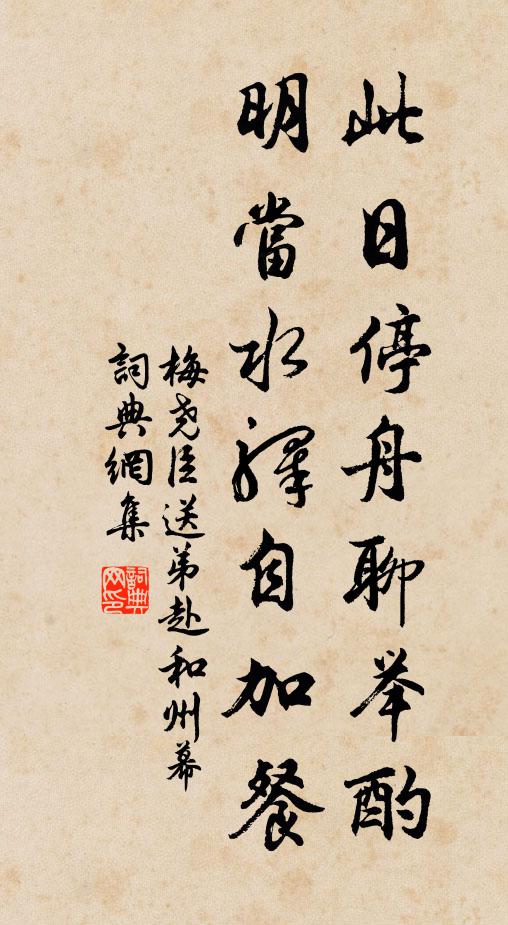 此日停舟聊举酌
明當水驛自加餐
梅堯臣送弟赴和州幕
詞典網集
詞典網印